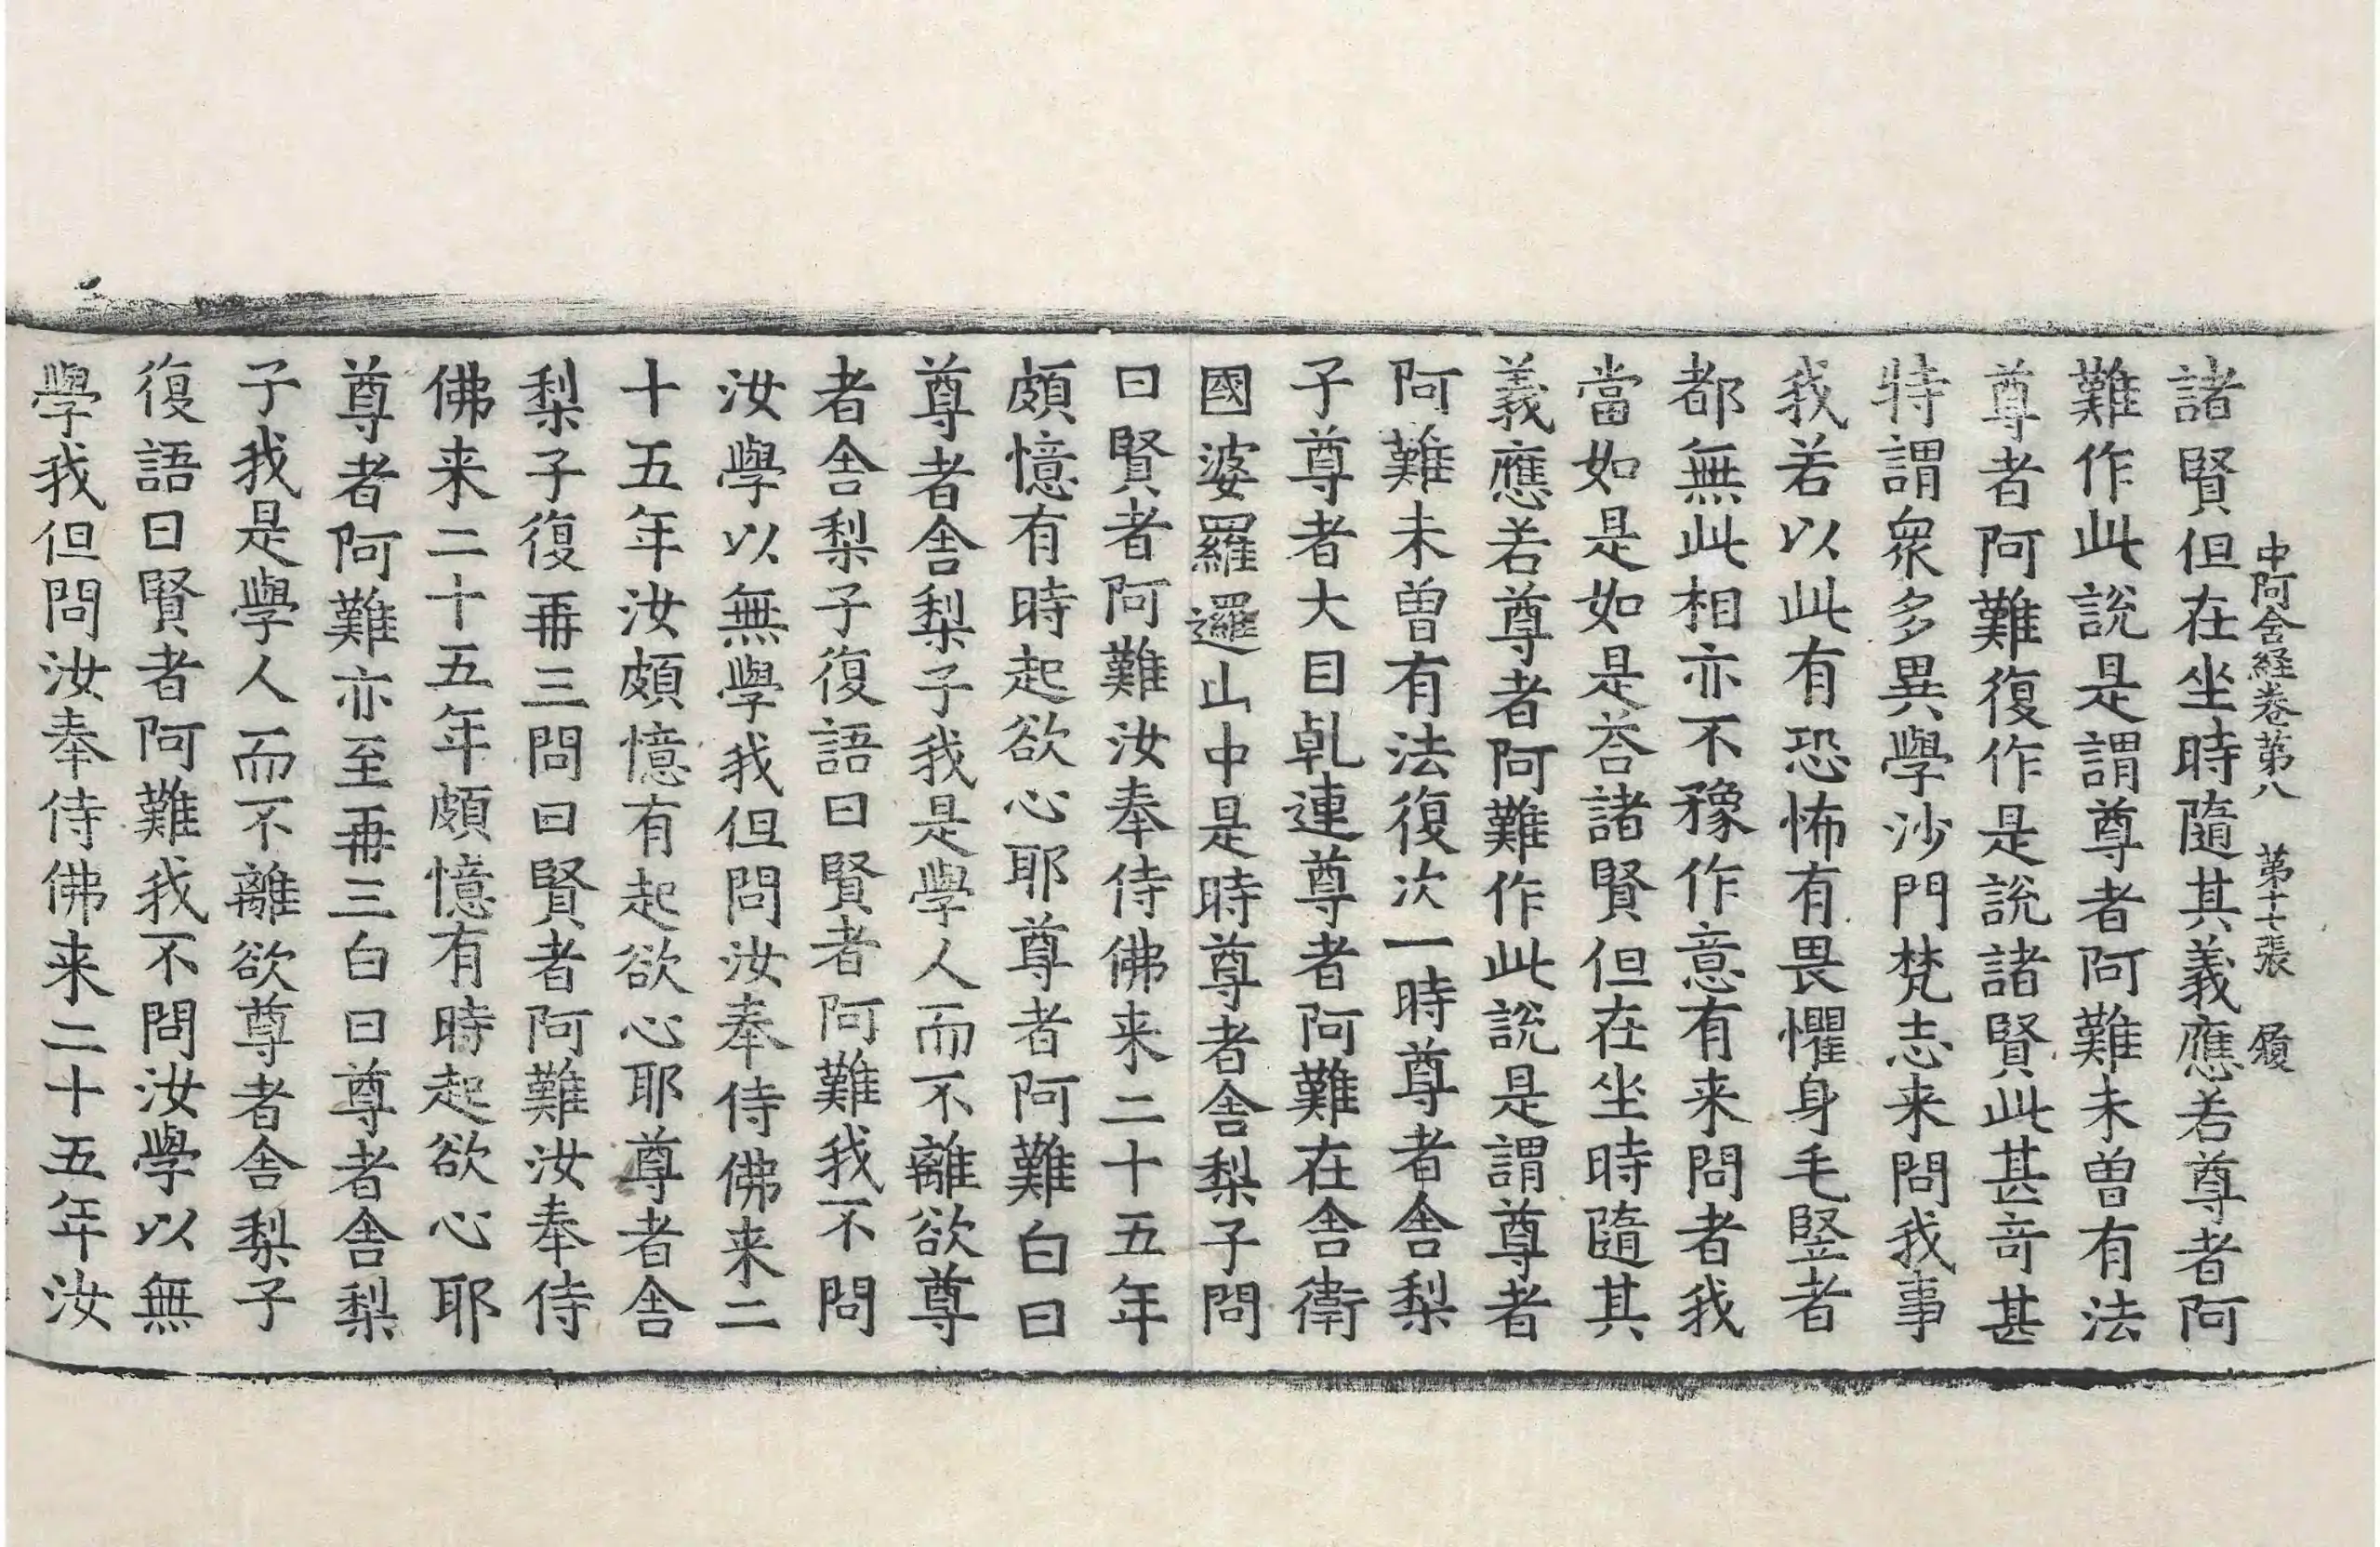 中阿含経卷第八 第十七張 履
諸賢但在坐時隨其義應若尊者阿
難作此說是謂尊者阿難未曾有法
尊者阿難復作是說諸賢此甚奇甚
特謂衆多異學沙門梵志来問我事
我若以此有恐怖有畏懼身毛竪者
都無此相亦不豫作意有来問者我
當如是如是荅諸賢但在坐時隨其
義應若尊者阿難作此說是謂尊者
阿難未曾有法復次一時尊者舎梨
子尊者大目乹連尊者阿難在舎衛
國婆羅邏山中是時尊者舎梨子問
曰賢者阿難汝奉侍佛来二十五年
頗憶有時起欲心耶尊者阿難白曰
尊者舎梨子我是學人而不離欲尊
者舎梨子復語曰賢者阿難我不問
汝學以無學我但問汝奉侍佛来二
十五年汝頗憶有起欲心耶尊者舎
梨子復再三問曰賢者阿難汝奉侍
佛来二十五年頗憶有時起欲心耶
尊者阿難亦至再三白曰尊者舎梨
子我是學人而不離欲尊者舎梨子
復語曰賢者阿難我不問汝學以無
學我但問汝奉侍佛来二十五年汝